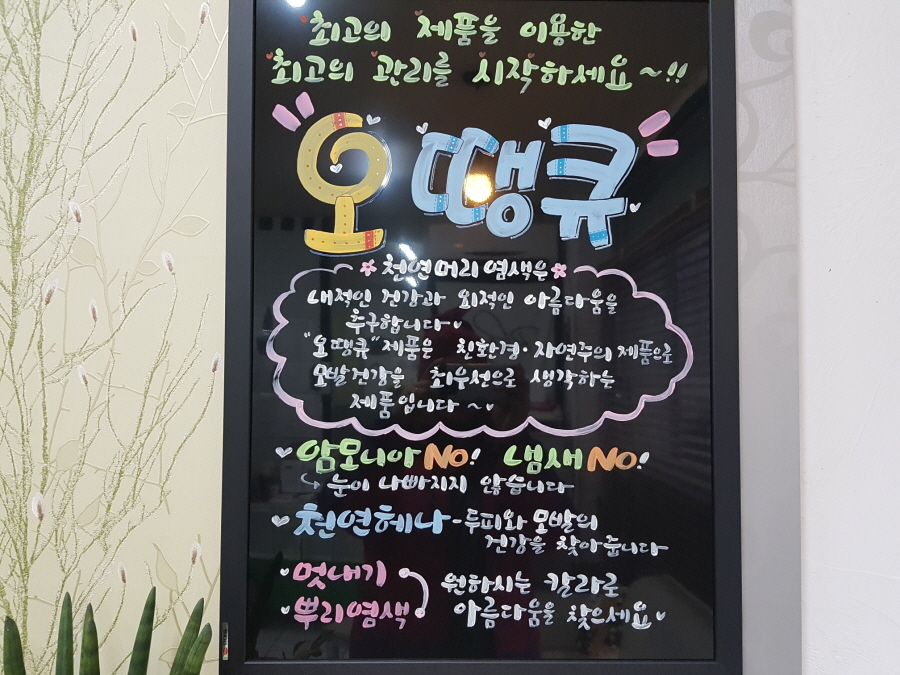 최고의 제품을 이용한
최고의 관리를 시작하세요~!!
오땡큐
천연머리염색은
내적인 건강과 외적인 아름다움을
추구합니다
"오땡큐" 제품은 친환경·자연주의 제품으로
모발건강을 최우선으로 생각하는
제품입니다~
암모니아 NO! 냄새 NO!
눈이 나빠지지 않습니다
천연헤나-두피와 모발의
건강을 찾아줍니다
멋내기 원하시는 칼라로
뿌리염색 아름다움을 찾으세요